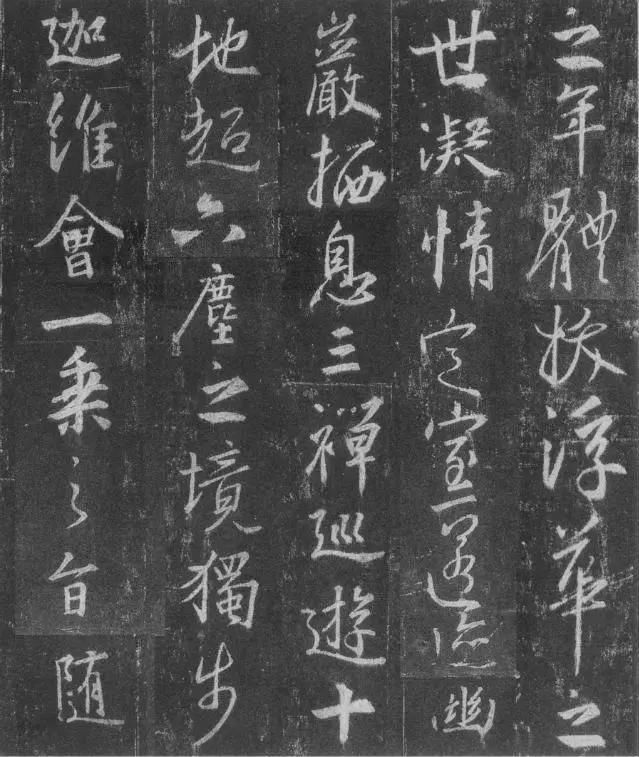 之年體拔浮華之
世凝情定室匿迹幽
巖栖息三禪巡遊十
地超六塵之境獨步
迦維會一乘之旨随